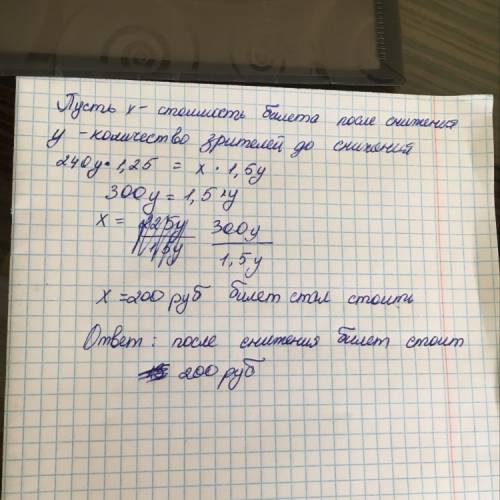 Пусть x - стоимость билета после снижения
y - количество зрителей до снижения
240y • 1,25 = x • 1,5y
300y = 1,5xy
x = 300y / 1,5y
x = 200 руб билет стал стоить
Ответ: после снижения билет стоит
200 руб